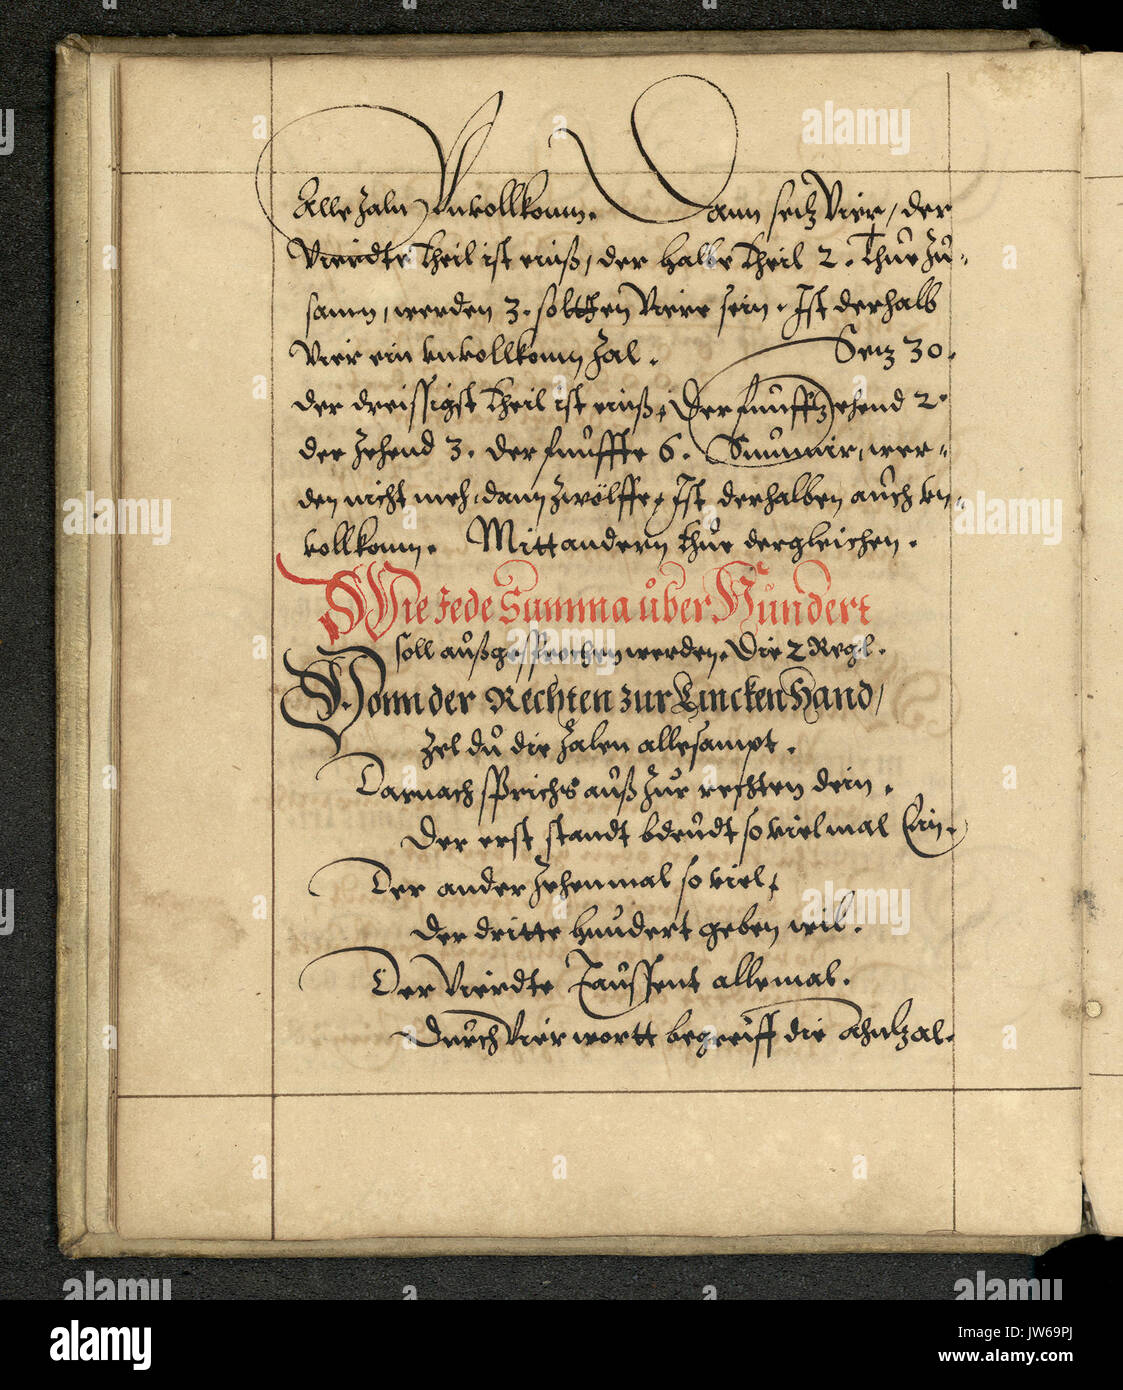 Alle Zaln Unvollkomn. Dann setz Vier, der
Vierdte theil ist einß, der halbe theil 2. thue zů-
samn, werden 3. soltten Viere sein. Ist derhalb
Vier ein unvollkomn Zal. Setz 30.
der dreissigst theil ist einß, Der fůnffzehend 2.
der Zehend 3. der fůnffte 6. Summir, wer-
den nicht meh, dann zwölffe, Ist derhalben aůch un-
vollkomn. Mitt andern thůe dergleichen.
Wie Jede Summa ůber Hůndert
soll außgesprochen werden. Die 2 Regl.
Vonn der Rechten zur Lincken Hand,
Zel dů die Zalen allesampt.
Darnach sprichs aůß zůr rechten dein.
Der erst standt bdeůdt so vielmal Ein.
Der ander Zehenmal so viel,
Der dritte hůndert geben wil.
Der Vierdte Taůssent allemal.
Důrch Vier wortt begreiff die
alamy
alamy
Image ID: JW69PJ
www.alamy.com